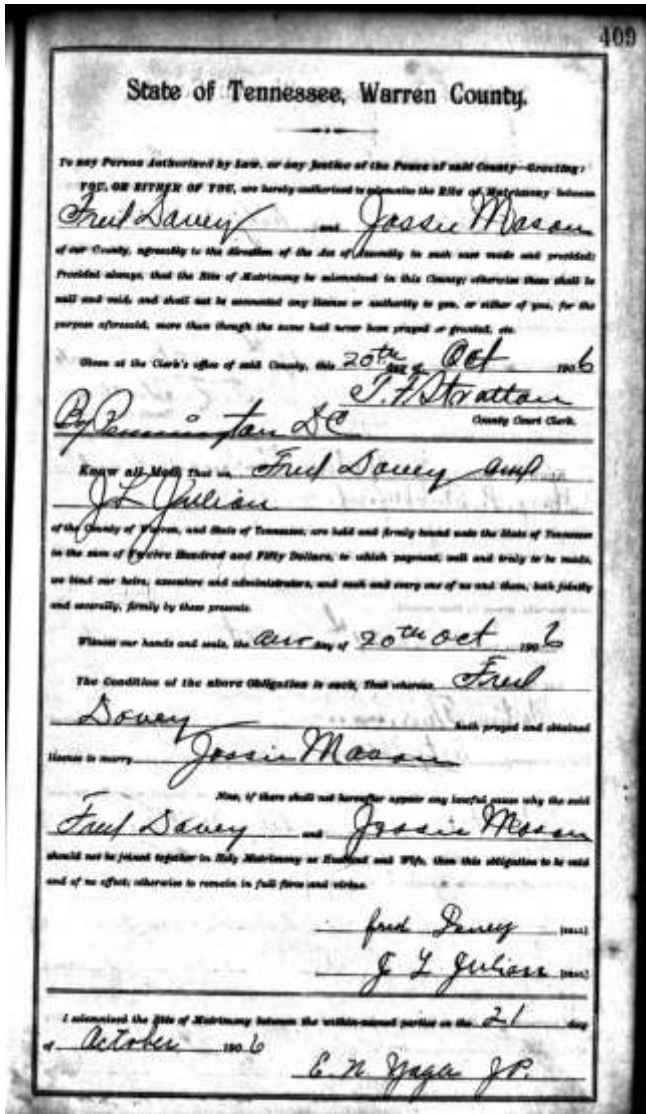 409
State of Tennessee, Warren County.
To any Person Authorized by Law, or any Justice of the Peace of said County—Greeting:
YOU, OR EITHER OF YOU, are hereby authorized to solemnize the Rite of Matrimony between
Fred Davey and Jossie Mason
of our County, agreeably to the direction of the Act of Assembly in such case made and provided;
Provided always, that the Rite of Matrimony be solemnized in this County; otherwise these shall be
null and void, and shall not be accounted any license or authority to you, or either of you, for the
purpose aforesaid, more than though the same had never been prayed or granted, etc.
Given at the Clerk's office of said County, this 20th day of Oct 1906
T. F. Stratton
County Court Clerk.
By Pennington DC
Know all Men, That we, Fred Davey and
J L Julian
of the County of Warren, and State of Tennessee, are held and firmly bound unto the State of Tennessee
in the sum of Twelve Hundred and Fifty Dollars, to which payment, well and truly to be made,
we bind our heirs, executors and administrators, and each and every one of us and them, both jointly
and severally, firmly by these presents.
Witness our hands and seals, the day of 20th Oct 1906
The Condition of the above Obligation is such, That whereas, Fred
Davey hath prayed and obtained
license to marry Jossie Mason
Now, if there shall not hereafter appear any lawful cause why the said
Fred Davey and Jossie Mason
should not be joined together in Holy Matrimony as Husband and Wife, then this obligation to be void
and of no effect; otherwise to remain in full force and virtue.
fred Davey [SEAL]
J L Julian [SEAL]
I solemnized the Rite of Matrimony between the within-named parties on the 21 day
of October 1906
E. N. Yager JP.